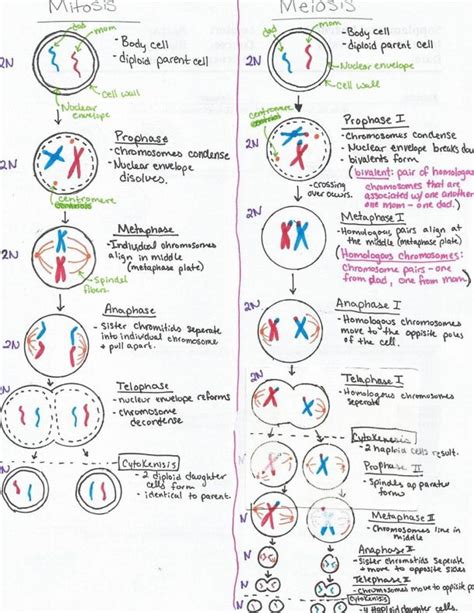 Mitosis
dad
mom
2N
- Body cell
- diploid parent cell
Cell wall
Nuclear
envelope
Prophase
- chromosomes condense
- Nuclear envelope
disolves.
2N
centromere
Metaphase
- Individual chromosomes
align in middle
(metaphase plate)
2N
Spindel
fibers
Anaphase
- Sister chromitids seperate
into individual chromosome
+ pull apart.
2N
Telophase
- nuclear envelope reforms
- chromosome
decondense
2N
Cytokenisis
- 2 diploid daughter
cells form
- identical to parent.
N
Meiosis
dad
mom
2N
- Body cell
- diploid parent cell
Nuclear envelope
cell wall
centromere
Prophase I
- Chromosomes condense
- Nuclear envelope breaks do
- bivalents form
(bivalent: pair of homologous
chromosomes that are
associated w/ one another
one mom - one dad.)
2N
- crossing
over occurs.
Metaphase I
- Homologous pairs align at
the middle (metaphase plate)
(Homologous chromosomes:
Chromosome pairs - one
from dad, one from mom)
2N
Anaphase I
- Homologous chromosomes
move to the oppisite poles
of the cell.
2N
Telaphase I
- Homologous chromosomes
seperate
2N
Cytokenesis
- 2 haploid cells result.
N
Prophase II
- Spindles apparatus
forms
Metaphase II
- Chromosomes line in
middle
N
Anaphase II
- Sister chromatids seperate
+ move to opposite sides
N
Telephase II
- Chromosomes move to opposite
N
Cytokenisis
- 4 Haploid daughter cells